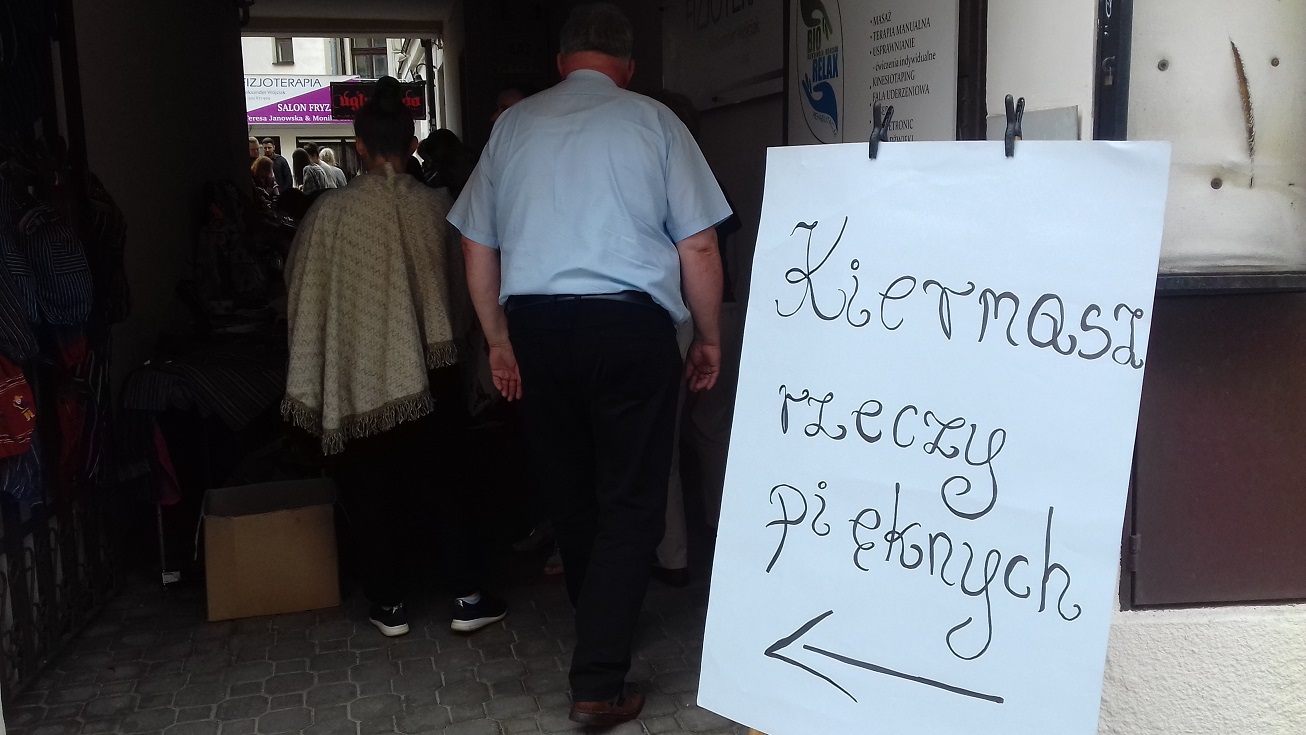 Kiermasz
rzeczy
pięknych
BIO
RELAX
• MASAŻ
• TERAPIA MANUALNA
• USPRAWNIANIE
- ćwiczenia indywidualne
KINESIOTAPING
FALA UDERZENIOWA
FIZJOTERAPIA
SALON FRYZ
Teresa Janowska & Monik